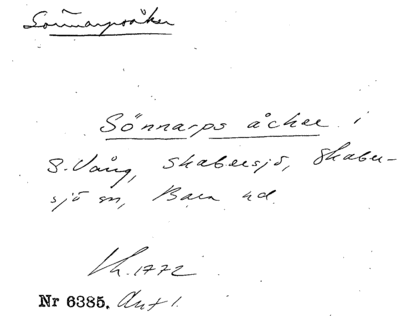 Sönnarpsåker
Sönnarps åcker i
S. Vång, Skabersjö, Skaber-
sjö sn, Bara hd.
Lh. 1772
Nr 6385. Akt 1.